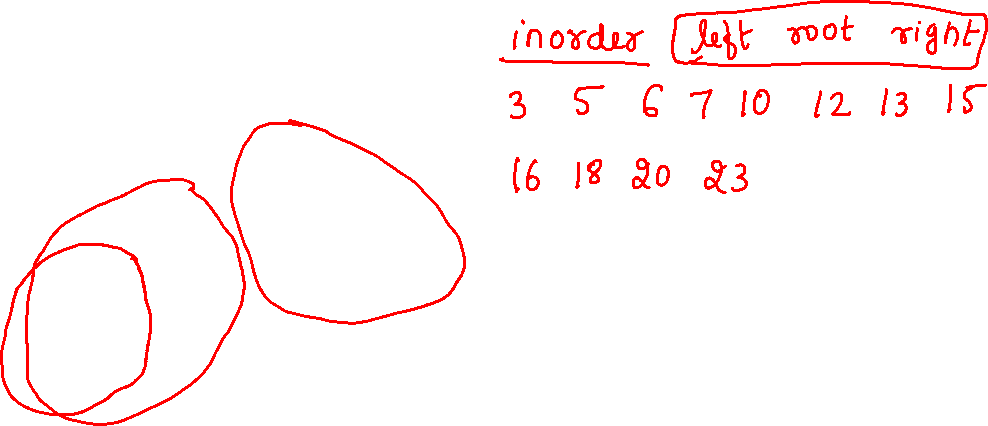 inorder left root right
3 5 6 7 10 12 13 15
16 18 20 23